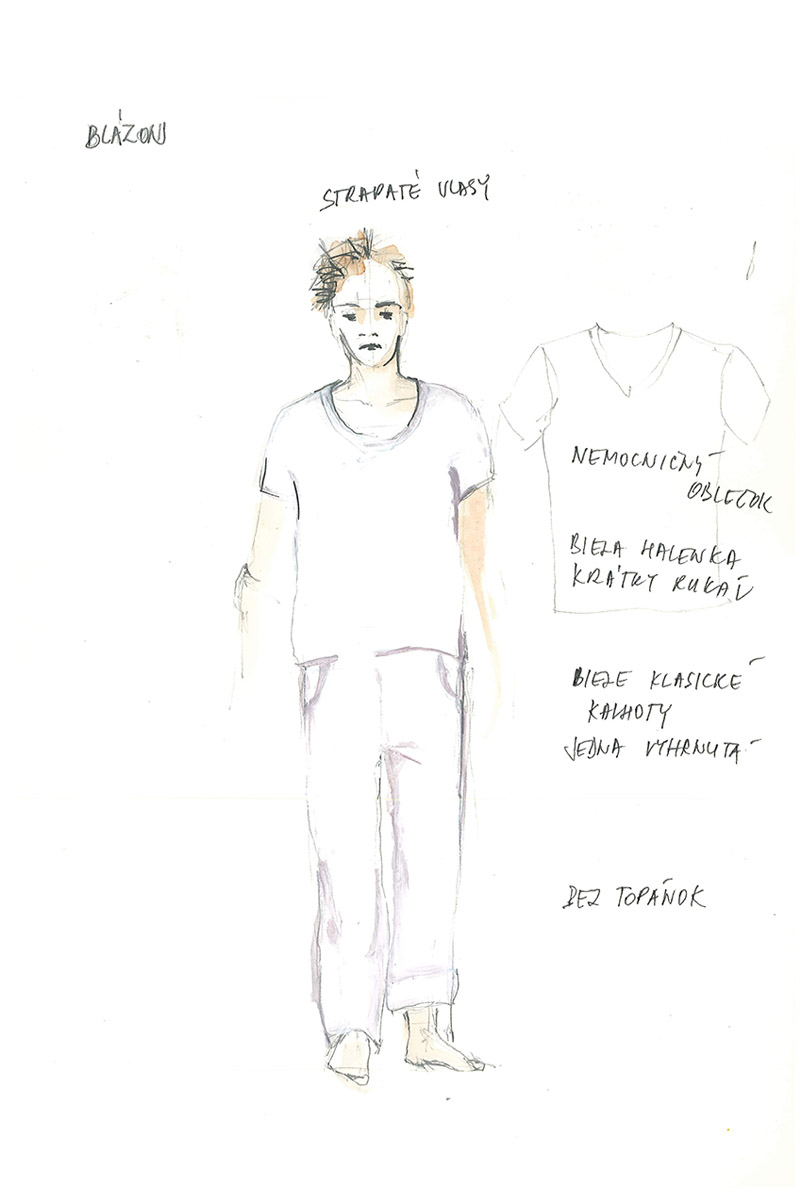 BLÁZON
STRAPATÉ VLASY
NEMOCNIČNÝ
OBLEČOK
BIELA HALENKA
KRÁTKY RUKÁV
BIELE KLASICKÉ
KALHOTY
JEDNA VYHRNUTÁ
BEZ TOPÁNOK